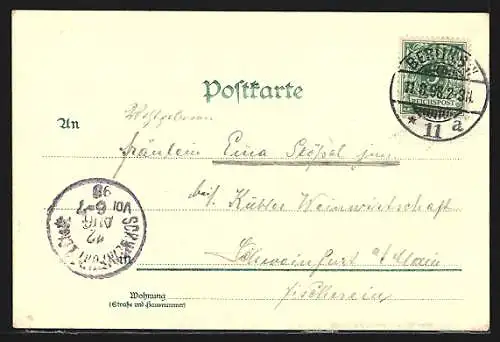 BERLIN W
11.8.98. 2-3N.
REICHSPOST
* 11 a
Postkarte
An
Wohlgeboren
Fräulein Stößel jun.
bei Kübler Weinwirtschaft
Schweinfurt a/Main
Fischerein
SCHWEINFURT
12
AUG
6-7
VOR
98
Wohnung
(Straße und Hausnummer)